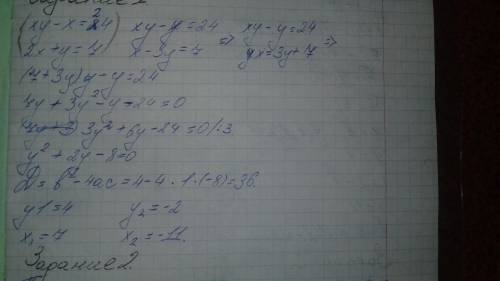 (xy-x²=24) xy-y=24 ⇒ xy-y=24
2x+y=7 x-3y=7 x=3y+7 ⇒
(7+3y)y-y=24
7y+3y²-y-24=0
3y²+6y-24=0/:3
y²+2y-8=0
D=b²-4ac=4-4·1·(-8)=36.
y1=4 y₂=-2
x₁=7 x₂=-11.
Задание 2.